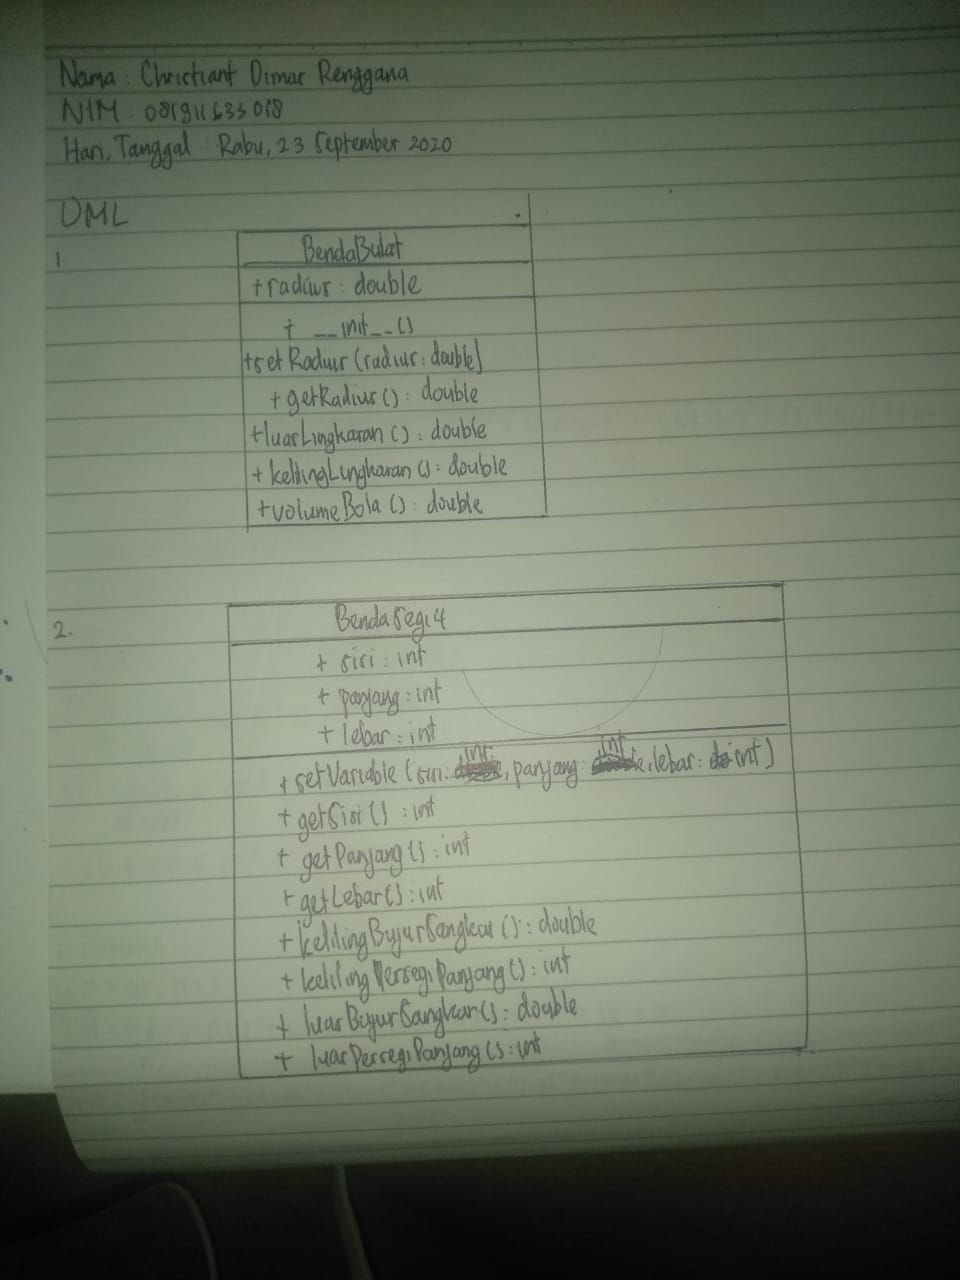 Nama : Christiant Dimar Renggana
NIM : 081911633018
Hari, Tanggal : Rabu, 23 September 2020
UML
1.
BendaBulat
+radius : double
+ __init__()
+setRadius (radius : double)
+ getRadius() : double
+luasLingkaran () : double
+ kelilingLingkaran () : double
+volumeBola () : double
2.
BendaSegi4
+ sisi : int
+ panjang : int
+ lebar : int
+ setVariable (sisi : int, panjang : int, lebar : int)
+ getSisi() : int
+ getPanjang() : int
+ getLebar() : int
+ kelilingBujurSangkar () : double
+ kelilingPersegiPanjang() : int
+ luasBujurSangkar() : double
+ luasPersegiPanjang() : int